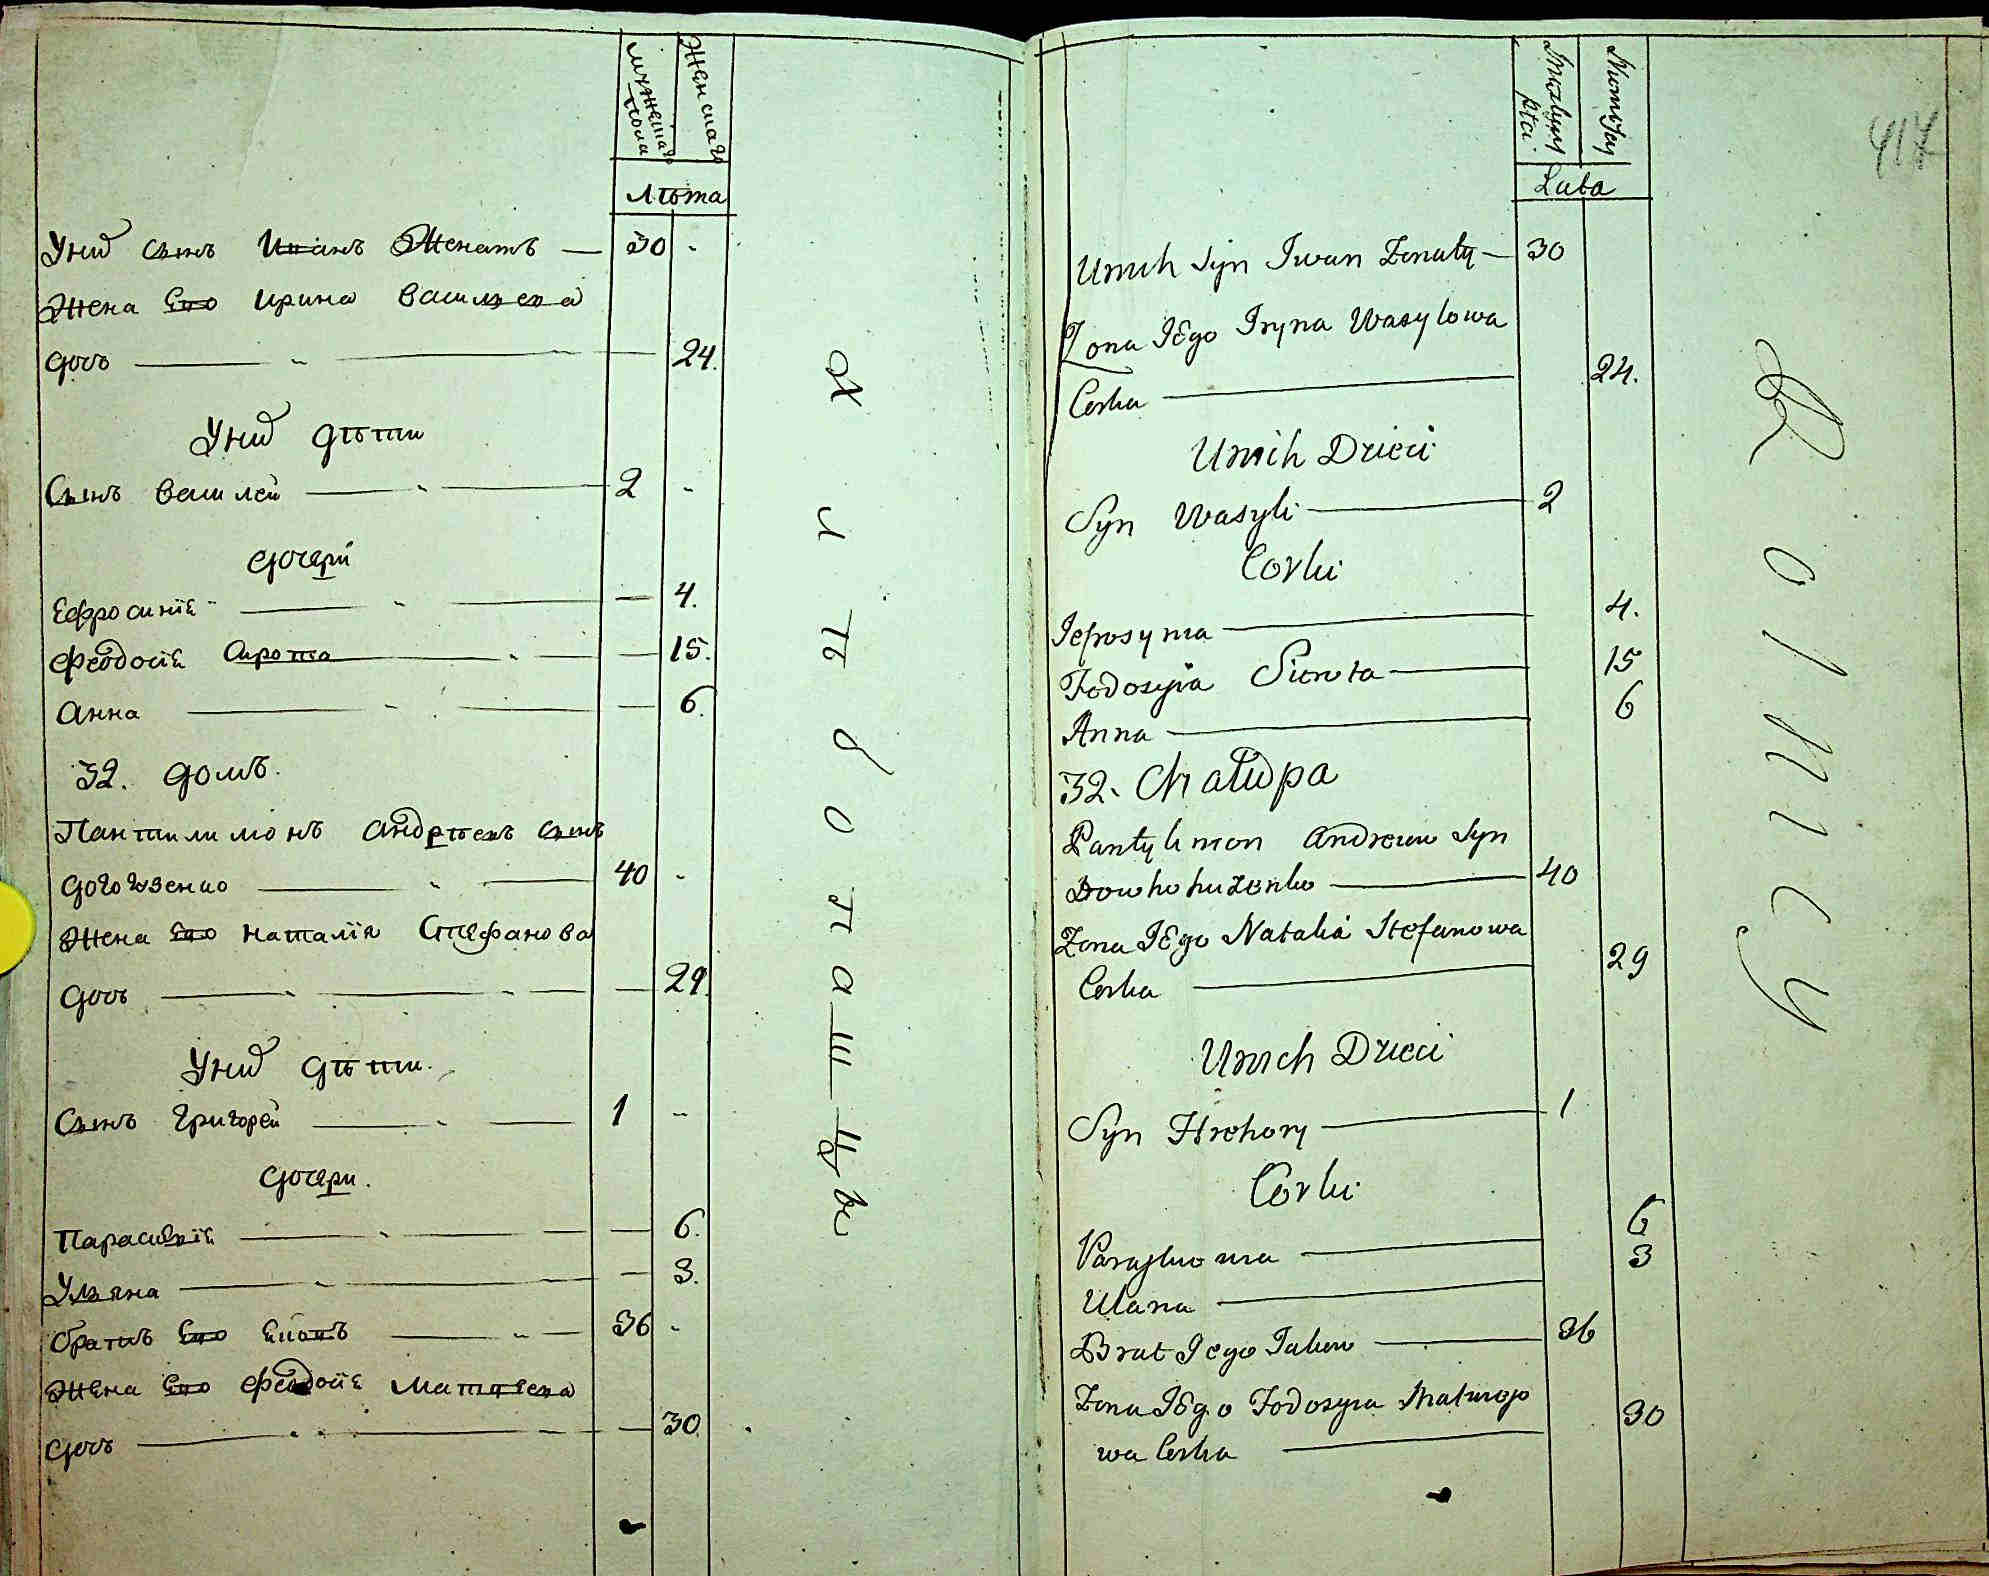 Мужескаго пола
Женскаго
Лѣта
Унихъ сынъ Иванъ Женатъ — 30 -
Жена Его Ирина Васильева
дочь — 24.
Унихъ дѣти
Сынъ Василей — 2 -
дочери
Ефросинїе — 4.
Феодосїе Сирота — 15.
Анна — 6.
32. домъ.
Пантилимонъ Андрѣевъ сынъ
— 40 -
Жена Его Наталїя Стефанова
дочь — 29.
Унихъ дѣти.
Сынъ Григорей — 1 -
дочери.
Параскевїе — 6.
Ульяна — 3.
братъ Его — 36 -
Жена Его Феодосїе Матвѣева
дочь — 30.
Хлѣбопашцы
417
płci
Lata
Unich Syn Iwan Żonaty — 30
Żona IEgo Iryna Wasylowa
Corka — 24.
Unich Dzieci
Syn Wasyli — 2
Corki
Iefrosynia — 4.
Fedosyia Sierota — 15
Anna — 6
32. Chałupa
Pantylimon Andreiew Syn
— 40
Żona IEgo Natalia Stefanowa
Corka — 29
Unich Dzieci
Syn Hrehory — 1
Corki
Paraskewia — 6
Ulana — 3
Brat Jego — 36
Żona IEgo Fodosyia Matwiejo
wa Corka — 30
Rolnicy